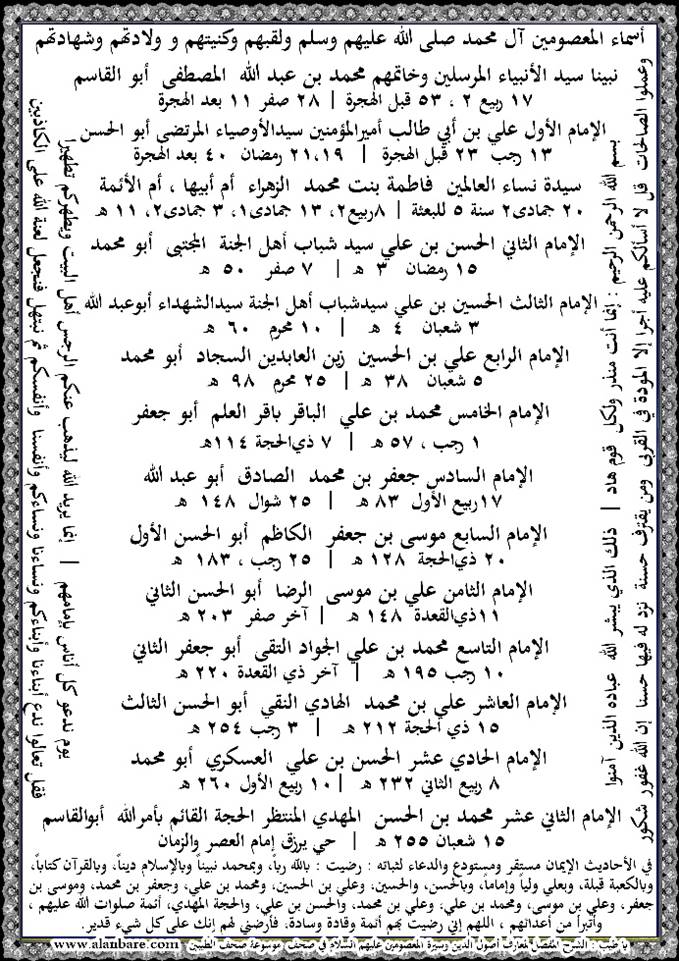 أسماء المعصومين آل محمد صلى الله عليهم وسلم ولقبهم وكنيتهم و ولادتهم وشهادتهم
نبينا سيد الأنبياء المرسلين وخاتمهم محمد بن عبد الله المصطفى أبو القاسم
١٧ ربيع ٢ ، ٥٣ قبل الهجرة | ٢٨ صفر ١١ بعد الهجرة
الإمام الأول علي بن أبي طالب أميرالمؤمنين سيدالأوصياء المرتضى أبو الحسن
١٣ رجب ٢٣ قبل الهجرة | ٢١،١٩ رمضان ٤٠ بعد الهجرة
سيدة نساء العالمين فاطمة بنت محمد الزهراء أم أبيها ، أم الأئمة
٢٠ جمادى٢ سنة ٥ للبعثة | ٨ربيع٢، ١٣ جمادى١، ٣ جمادى٢، ١١ هـ
الإمام الثاني الحسن بن علي سيد شباب أهل الجنة المجتبى أبو محمد
١٥ رمضان ٣ هـ | ٧ صفر ٥٠ هـ
الإمام الثالث الحسين بن علي سيدشباب أهل الجنة سيدالشهداء أبوعبد الله
٣ شعبان ٤ هـ | ١٠ محرم ٦٠ هـ
الإمام الرابع علي بن الحسين زين العابدين السجاد أبو محمد
٥ شعبان ٣٨ هـ | ٢٥ محرم ٩٨ هـ
الإمام الخامس محمد بن علي الباقر باقر العلم أبو جعفر
١ رجب ، ٥٧ هـ | ٧ ذي‌الحجة ١١٤هـ
الإمام السادس جعفر بن محمد الصادق أبو عبد الله
١٧ربيع الأول ٨٣ هـ | ٢٥ شوال ١٤٨ هـ
الإمام السابع موسى بن جعفر الكاظم أبو الحسن الأول
٢٠ ذي‌الحجة ١٢٨ هـ | ٢٥ رجب ، ١٨٣ هـ
الإمام الثامن علي بن موسى الرضا أبو الحسن الثاني
١١ذي‌القعدة ١٤٨ هـ | آخر صفر ٢٠٣ هـ
الإمام التاسع محمد بن علي الجواد التقي أبو جعفر الثاني
١٠ رجب ١٩٥ هـ | آخر ذي القعدة ٢٢٠ هـ
الإمام العاشر علي بن محمد الهادي النقي أبو الحسن الثالث
١٥ ذي الحجة ٢١٢ هـ | ٣ رجب ٢٥٤ هـ
الإمام الحادي عشر الحسن بن علي العسكري أبو محمد
٨ ربيع الثاني ٢٣٢ هـ | ١٠ ربيع الأول ٢٦٠ هـ
الإمام الثاني عشر محمد بن الحسن المهدي المنتظر الحجة القائم بأمرالله أبوالقاسم
١٥ شعبان ٢٥٥ هـ | حي يرزق إمام العصر والزمان
بسم الله الرحمن الرحيم : إنما أنت منذر ولكل قوم هاد | ذلك الذي يبشر الله عباده الذين آمنوا
وعملوا الصالحات قل لا أسألكم عليه أجرا إلا المودة في القربى ومن يقترف حسنة نزد له فيها حسنا إن الله غفور شكور
يوم ندعو كل أناس بإمامهم | إنما يريد الله ليذهب عنكم الرجس أهل البيت ويطهركم تطهيرا
فقل تعالوا ندع أبناءنا وأبناءكم ونساءنا ونساءكم وأنفسنا وأنفسكم ثم نبتهل فنجعل لعنة الله على الكاذبين
في الأحاديث الإيمان مستقر ومستودع والدعاء لثباته : رضيت : بالله رباً، وبمحمد نبيناً وبالإسلام ديناً، وبالقرآن كتاباً،
وبالكعبة قبلة، وبعلي ولياً وإماماً، وبالحسن، والحسين، وعلي بن الحسين، ومحمد بن علي، وجعفر بن محمد، وموسى بن
جعفر، وعلي بن موسى، ومحمد بن علي، وعلي بن محمد، والحسن بن علي، والحجة المهدي، أئمة صلوات الله عليهم ،
وأتبرأ من أعدائهم ، اللهم إني رضيت بهم أئمة وقادة وسادة، فأرضني لهم إنك على كل شيء قدير.
يا طيب : الشرح المفصل لمعارف أصول الدين وسيرة المعصومين عليهم السلام في صحف موسوعة صحف الطيبين www.alanbare.com